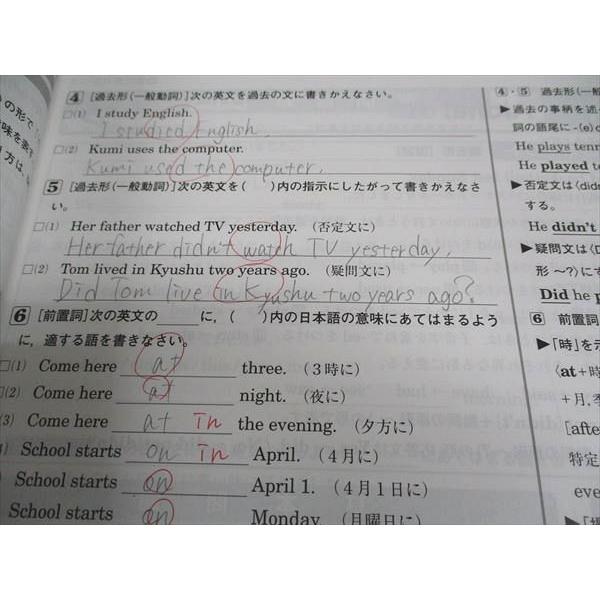 の形で
味を表す
方は，
4 [過去形(一般動詞)]次の英文を過去の文に書きかえなさい。
□(1) I study English.
I studied English.
□(2) Kumi uses the computer.
Kumi used the computer.
5 [過去形(一般動詞)]次の英文を(　)内の指示にしたがって書きかえなさ
い。
□(1) Her father watched TV yesterday.（否定文に）
Her father didn't watch TV yesterday.
□(2) Tom lived in Kyushu two years ago.（疑問文に）
Did Tom live in Kyushu two years ago?
6 [前置詞]次の英文の＿＿に，(　)内の日本語の意味にあてはまるよう
に，適する語を書きなさい。
□(1) Come here at three.（3時に）
(2) Come here at night.（夜に）
(3) Come here at in the evening.（夕方に）
) School starts on in April.（4月に）
School starts on April 1.（4月1日に）
School starts on Monday.（月曜日に）
4・5 過去形(一般
▶過去の事柄を述
詞の語尾に -(e)d
He plays tenn
He played te
▶否定文は〈did
する。
He didn't
▶疑問文は〈D
形 ～?〉にす
Did he p
6 前置詞
▶「時」を示
〈at+時
+月，季
[afte
特定
eve
▶「場